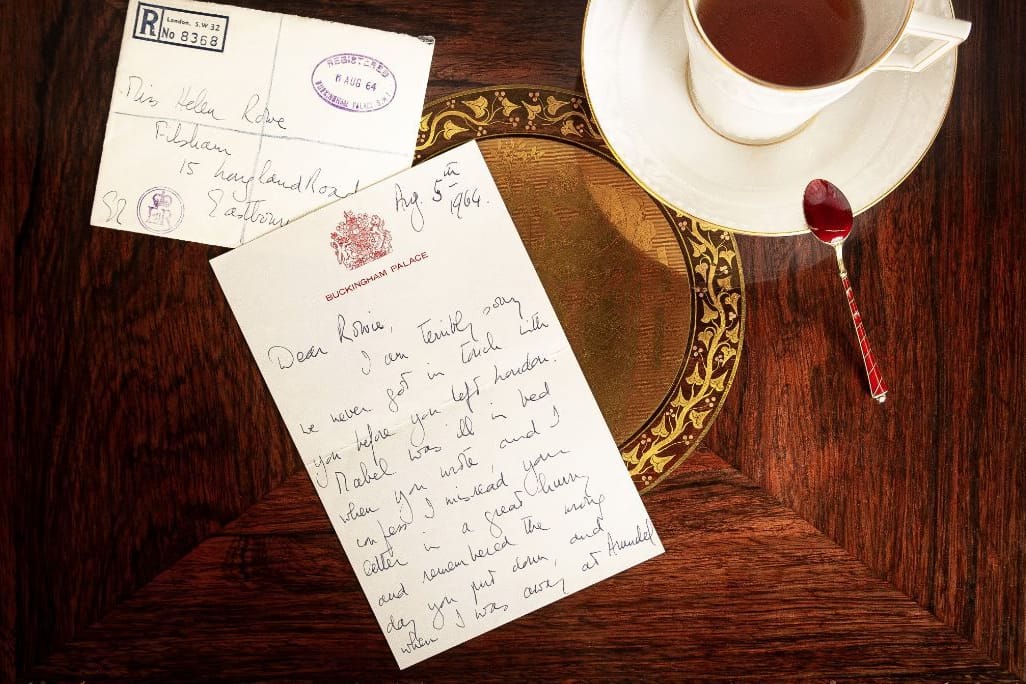 R
London, S.W 32
No 8368
REGISTERED
6 AUG 64
BUCKINGHAM PALACE S.W.1
Miss Helen Rowe
Filsham
15 Road
E II R
Aug. 5th
1964.
BUCKINGHAM PALACE
Dear Rowie,
I am terribly sorry
we never got in touch with
you before you left London.
Mabel was ill in bed
when you wrote, and I
confess I misread your
letter in a great hurry
and remembered the wrong
day you put down, and
when I was away at Arundel